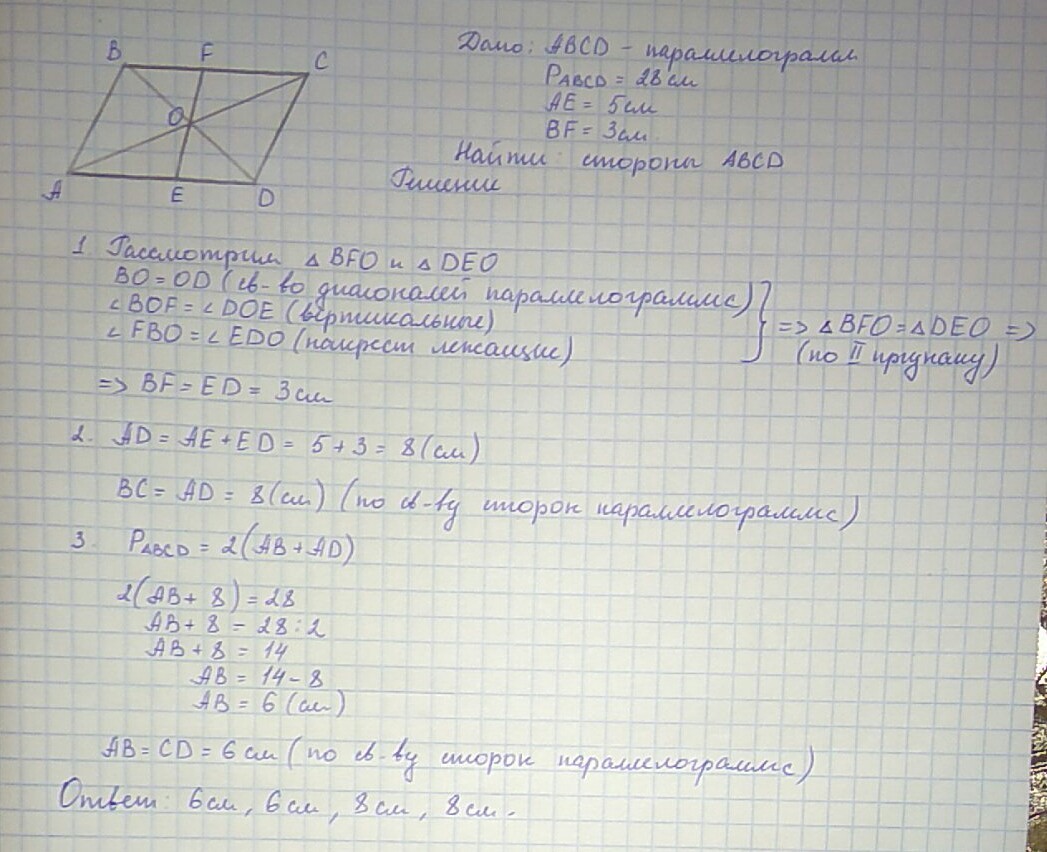 B F C
O
A E D
Дано: ABCD - параллелограмм
PABCD = 28 см
AE = 5 см
BF = 3 см
Найти: стороны ABCD
Решение
1. Рассмотрим △ BFO и △ DEO
BO = OD (св-во диагоналей параллелограмма)
∠BOF = ∠DOE (вертикальные)
∠FBO = ∠EDO (накрест лежащие)
} => △BFO = △DEO =>
(по II признаку)
=> BF = ED = 3 см
2. AD = AE + ED = 5 + 3 = 8 (см)
BC = AD = 8 (см) (по св-ву сторон параллелограмма)
3. PABCD = 2(AB + AD)
2(AB + 8) = 28
AB + 8 = 28 : 2
AB + 8 = 14
AB = 14 - 8
AB = 6 (см)
AB = CD = 6 см (по св-ву сторон параллелограмма)
Ответ: 6 см, 6 см, 8 см, 8 см.